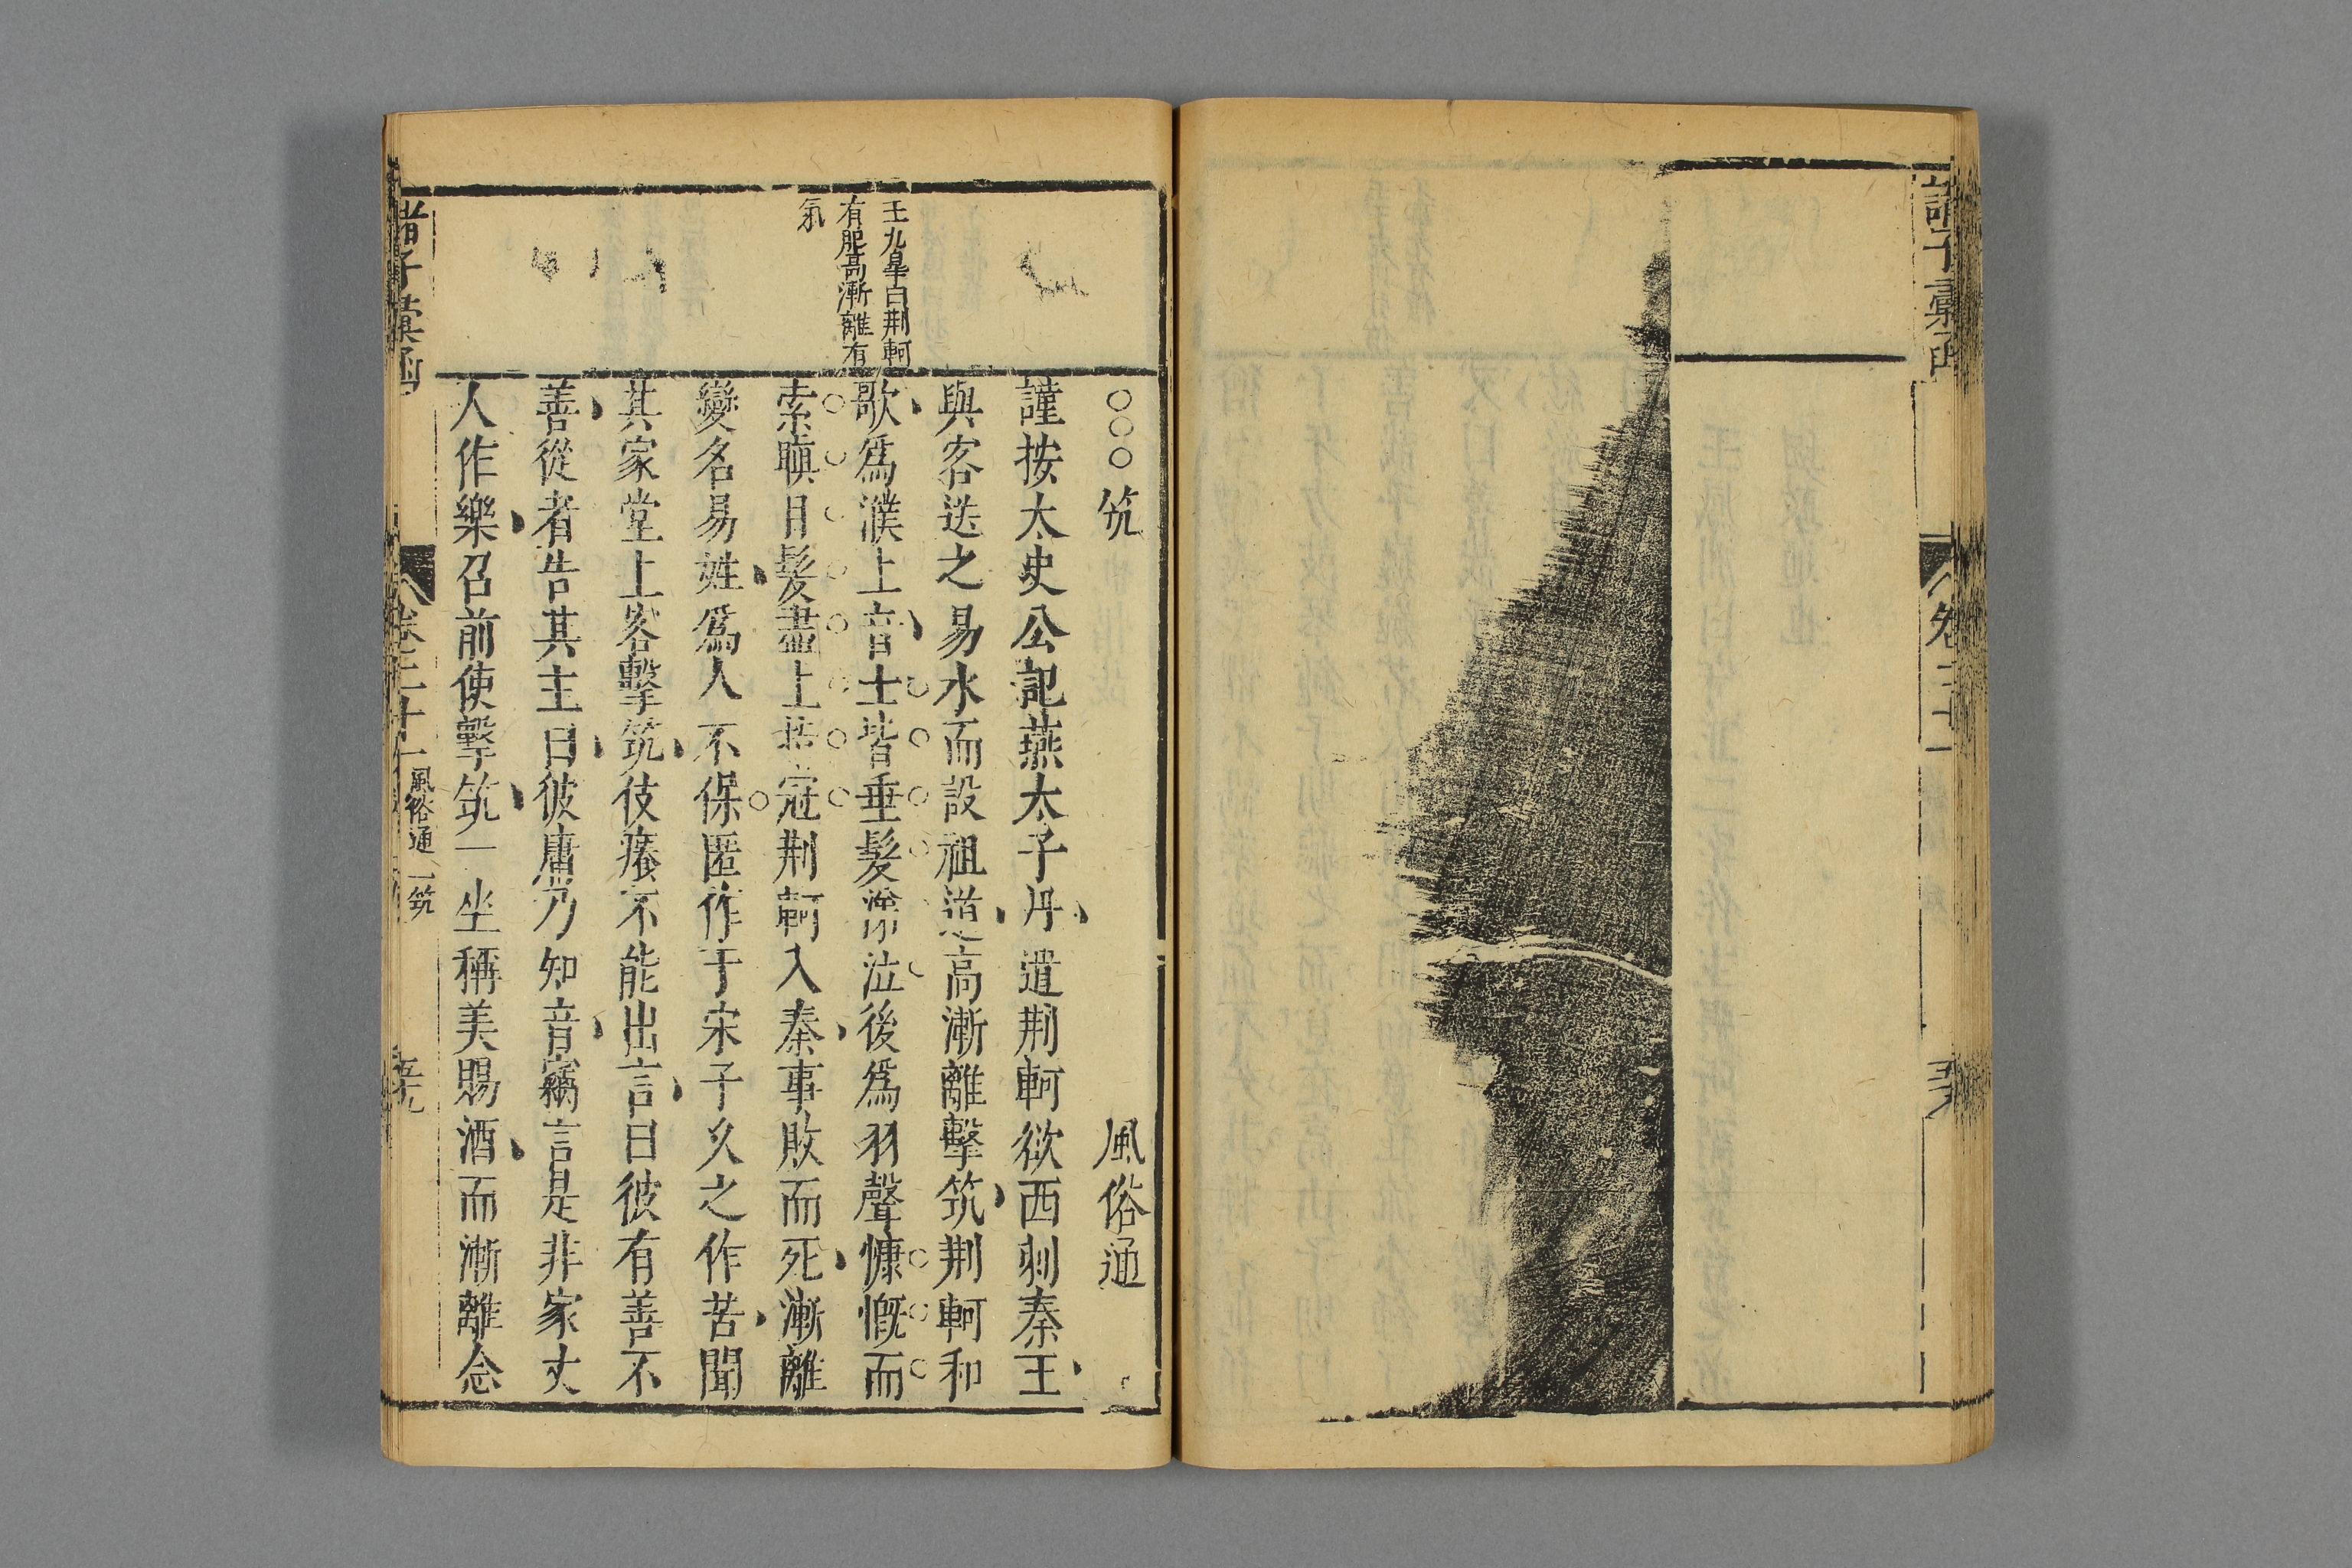 諸子彙函
卷二十一
○○○筑 風俗通
謹按太史公記燕太子丹遣荆軻欲西刺秦王
與客送之易水而設祖道高漸離擊筑荆軻和
歌爲濮上音士皆垂髮涕泣後爲羽聲慷慨而
索瞋目髮盡上指冠荆軻入秦事敗而死漸離
變名易姓爲人不保匿作于宋子乆之作苦聞
其家堂上客擊筑伎癢不能出言曰彼有善不
善從者告其主曰彼庸乃知音竊言是非家丈
人作樂召前使擊筑一坐稱美賜酒而漸離念
王九皐曰荆軻
有肥高漸離有
氣
諸子彙函
卷二十一
風俗通
筑